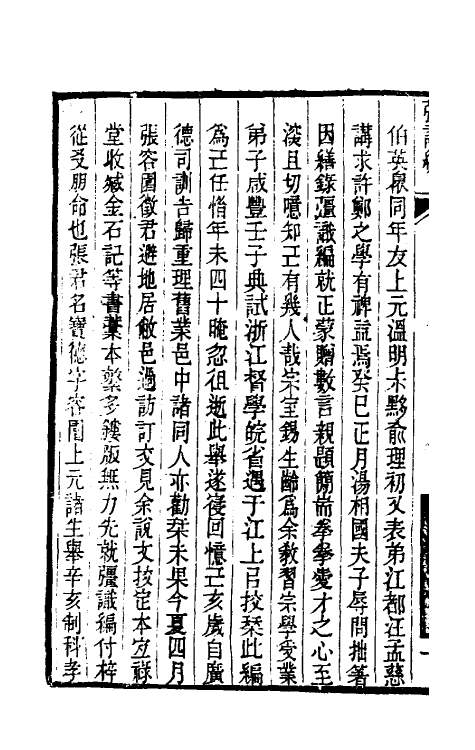 伯英舉同年友上元溫明未黟俞理初又表弟江都汪孟慈
講求許鄭之學有裨益焉癸巳正月湯相國夫子辱問拙著
因繕錄彊識編就正蒙贈數言親題簡耑拳拳愛才之心至
深且切噫知己有幾人哉宗室錫生齡為余敎習宗學受業
弟子咸豐壬子典試浙江督學皖省遇于江上㠯授栞此編
為己任惜年未四十晻忽徂逝此舉遂寑回憶己亥歲自廣
德司訓告歸重理舊業邑中諸同人亦勸栞未果今夏四月
張容園徵君避地居敝邑過訪訂交見余說文挍定本宜祿
堂收臧金石記等書藁本繫多鏤版無力先就彊識編付梓
從㕛朋命也張君名寶德字容園上元諸生舉辛亥制科孝